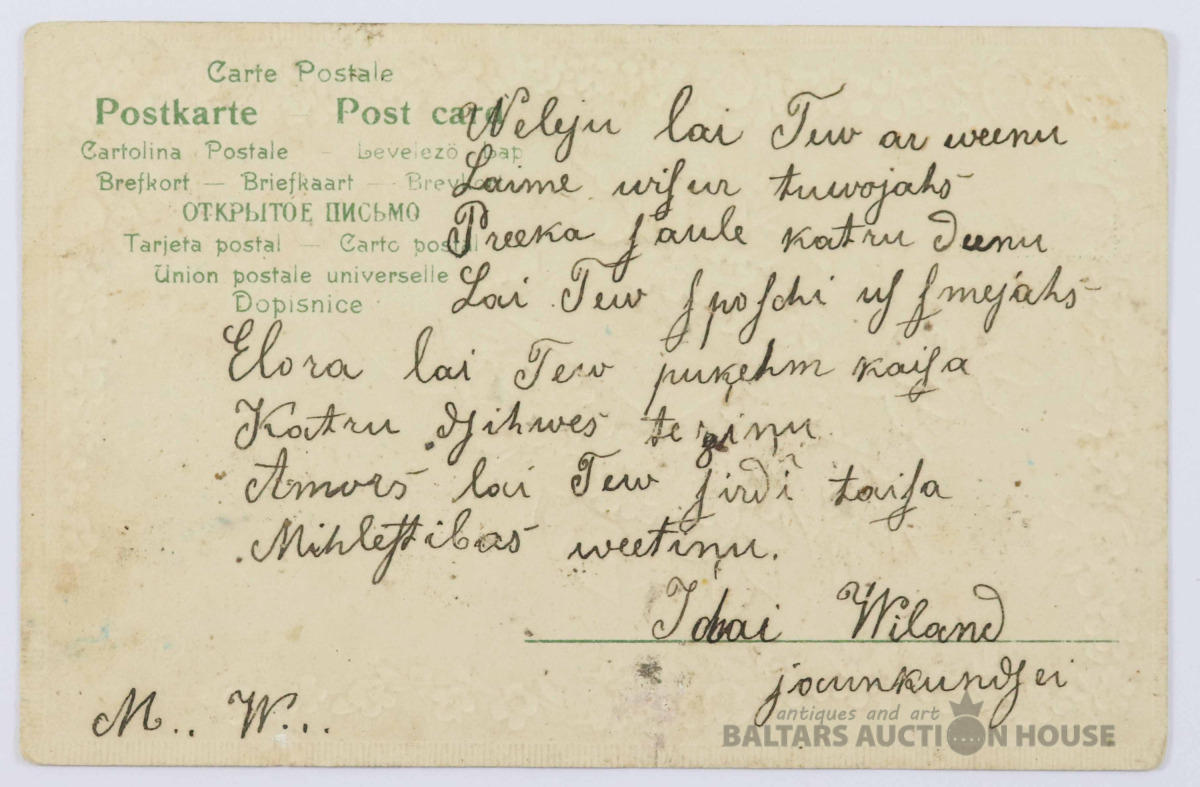 Carte Postale
Postkarte — Post card
Cartolina Postale — Levelező Lap
Brefkort — Briefkaart — Brevkort
ОТКРЫТОЕ ПИСЬМО
Tarjeta postal — Carto postal
Union postale universelle
Dopisnice
Weleju lai Tew ar weenu
Laime wiſur tuwojahs
Preeka ſaule katru deenu
Lai Tew ſpoſchi uſ ſmejahs
Flora lai Tew pukehm kaiſa
Katru dſihwes teziņu
Amors lai Tew ſirdī taiſa
Mihleſtibas weetiņu.
Idai Wiland
jaunkundſei
M.. W...
antiques and art
BALTARS AUCTION HOUSE